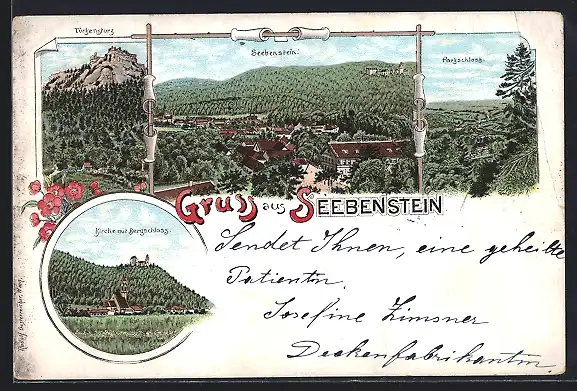 Türkensturz
Seebenstein.
Parkschloss.
Gruss aus SEEBENSTEIN
Kirche mit Bergschloss.
Sendet Ihnen, eine geheilte
Patientin.
Josefine Zimsner
Deckenfabrikantin